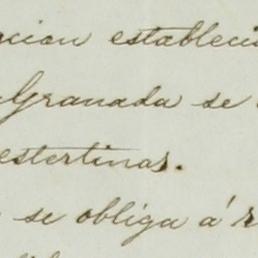 acion estableci
Granada se
estertinas.
se obliga á r